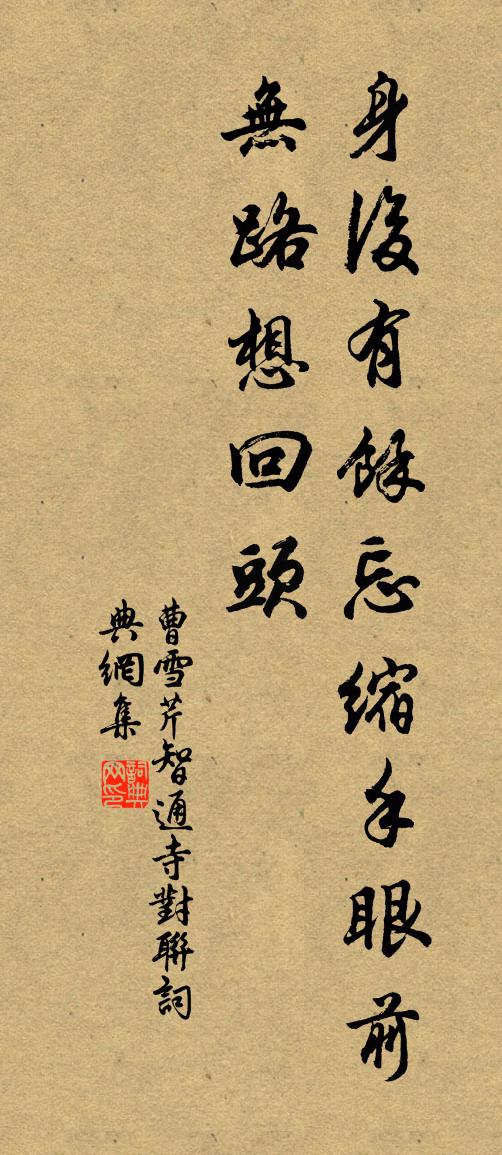 身後有餘忘縮手眼前
無路想回頭
曹雪芹智通寺對聯詞
典網集
詞典網印